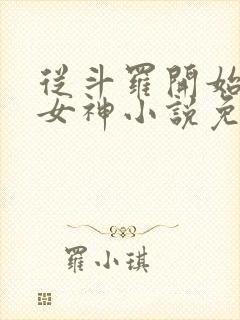 從斗羅開始
女神小說免
羅小琪